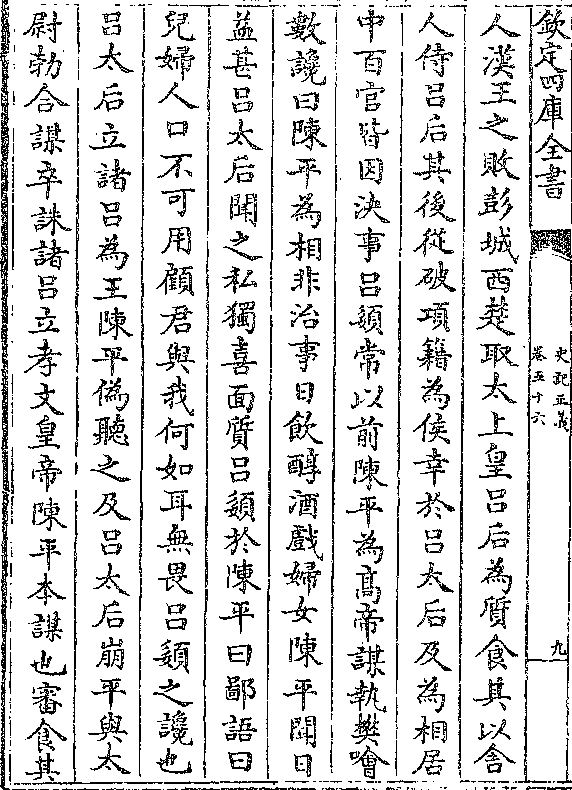 欽定四庫全書
史記正義
卷五十六
九
人漢王之敗彭城西楚取太上皇吕后為質食其以舍
人侍吕后其後從破項籍為侯幸於吕太后及為相居
中百官皆因決事吕嬃常以前陳平為髙帝謀執樊噲
數讒曰陳平為相非治事日飲醇酒戲婦女陳平聞日
益甚吕太后聞之私獨喜面質吕嬃於陳平曰鄙語曰
兒婦人口不可用顧君與我何如耳無畏吕嬃之讒也
吕太后立諸吕為王陳平偽聽之及吕太后崩平與太
尉勃合謀卒誅諸吕立孝文皇帝陳平本謀也審食其